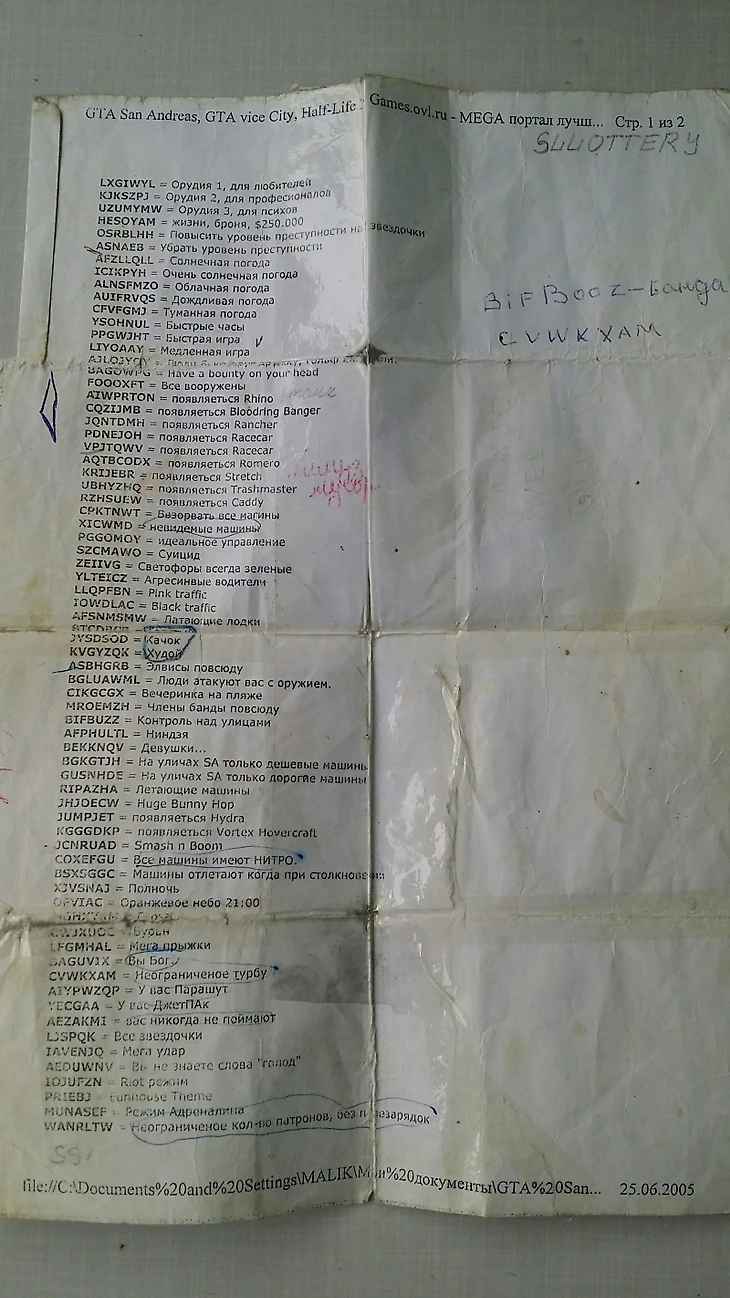 GTA San Andreas, GTA vice City, Half-Life Games.ovl.ru - MEGA портал лучш... Стр. 1 из 2
SLLOTTERY
LXGIWYL = Орудия 1, для любителей
KJKSZPJ = Орудия 2, для професионалов
UZUMYMW = Орудия 3, для психов
HESOYAM = жизни, броня, $250.000
OSRBLHH = Повысить уровень преступности на звездочки
ASNAEB = Убрать уровень преступности
AFZLLQLL = Солнечная погода
ICIKPYH = Очень солнечная погода
ALNSFMZO = Облачная погода
AUIFRVQS = Дождливая погода
CFVFGMJ = Туманная погода
YSOHNUL = Быстрые часы
PPGWJHT = Быстрая игра
LIYOAAY = Медленная игра
BIFBOOZ-банда
CVWKXAM
BAGOWPG = Have a bounty on your head
FOOOXFT = Все вооружены
AIWPRTON = появляеться Rhino танк
CQZIJMB = появляеться Bloodring Banger
JQNTDMH = появляеться Rancher
PDNEJOH = появляеться Racecar
VPJTQWV = появляеться Racecar
AQTBCODX = появляеться Romero
KRIJEBR = появляеться Stretch
UBHYZHQ = появляеться Trashmaster
RZHSUEW = появляеться Caddy
CPKTNWT = Взорвать все магины
XICWMD = невидемые машины
PGGOMOY = идеальное управление
SZCMAWO = Суицид
ZEIIVG = Светофоры всегда зеленые
YLTEICZ = Агресинвые водители
LLQPFBN = Pink traffic
IOWDLAC = Black traffic
AFSNMSMW = Латающие лодки
JYSDSOD = Качок
KVGYZQK = Худой
ASBHGRB = Элвисы повсюду
BGLUAWML = Люди атакуют вас с оружием.
CIKGCGX = Вечеринка на пляже
MROEMZH = Члены банды повсюду
BIFBUZZ = Контроль над улицами
AFPHULTL = Ниндзя
BEKKNQV = Девушки...
BGKGTJH = На уличах SA только дешевые машины
GUSNHDE = На уличах SA только дорогие машины
RIPAZHA = Летающие машины
JHJOECW = Huge Bunny Hop
JUMPJET = появляеться Hydra
KGGGDKP = появляеться Vortex Hovercraft
JCNRUAD = Smash n Boom
COXEFGU = Все машины имеют НИТРО.
BSXSGGC = Машины отлетают когда при столкновении
XJVSNAJ = Полночь
OFVIAC = Оранжевое небо 21:00
LFGMHAL = Мега прыжки
BAGUVIX = Вы Бог
CVWKXAM = Неограниченое турбу
AIYPWZQP = У вас Парашут
YECGAA = У вас ДжетПАк
AEZAKMI = вас никогда не поймают
LJSPQK = Все звездочки
IAVENJQ = Мега удар
AEDUWNV = Вы не знаете слова "голод"
IOJUFZN = Riot режим
PRIEBJ = Funhouse Theme
MUNASEF = Режим Адреналина
WANRLTW = Неограниченое кол-во патронов, без перезарядок
file://C:\Documents%20and%20Settings\MALIK\Мои%20документы\GTA%20San... 25.06.2005